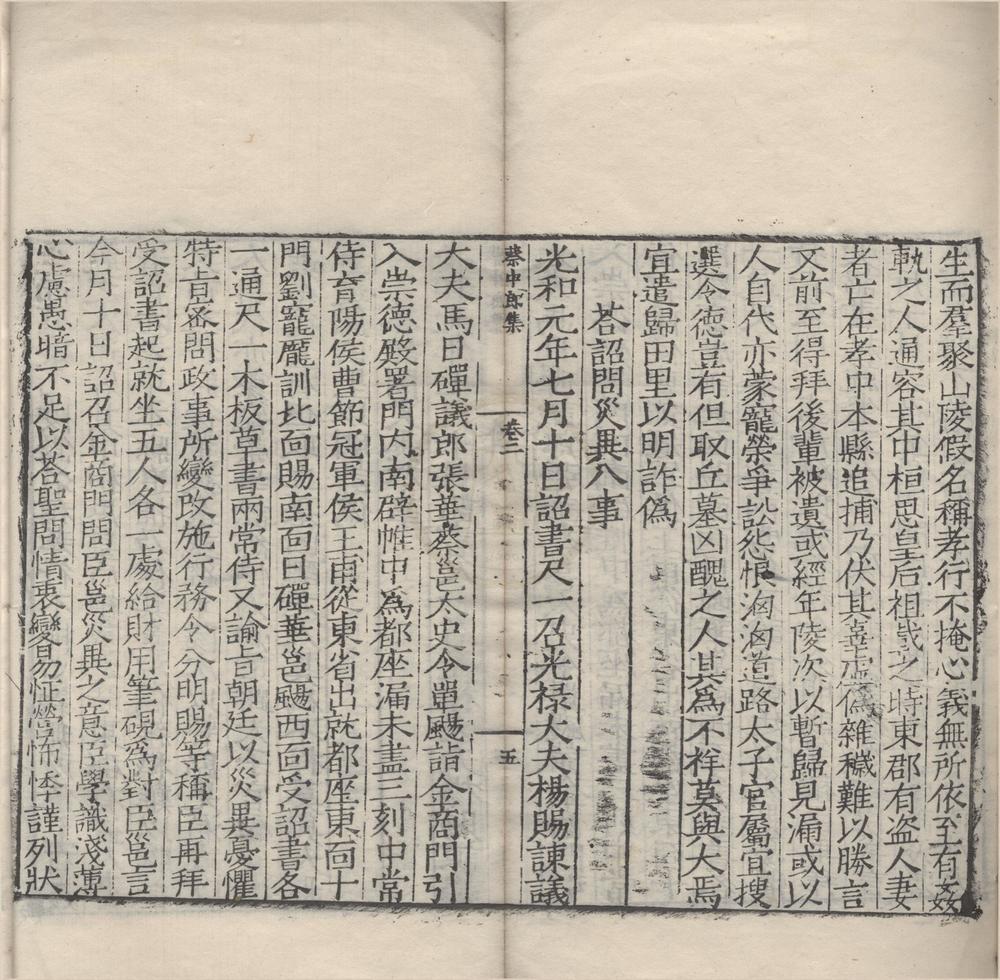 生而羣聚山陵假名稱孝行不掩心義無所依至有姦
軌之人通容其中桓思皇后祖載之時東郡有盗人妻
者亡在孝中本縣追捕乃伏其辜虚僞雜穢難以勝言
又前至得拜後輩被遺或經年陵次以暫歸見漏或以
人自代亦蒙寵榮爭訟怨恨洶洶道路太子官屬宜搜
選令德豈有但取丘墓凶醜之人其爲不祥莫與大焉
宜遣歸田里以明詐僞
荅詔問災異八事
光和元年七月十日詔書尺一召光禄大夫楊賜諫議
蔡中郎集 卷二 五
大夫馬日磾議郎張華蔡邕太史令單颺詣金商門引
入崇德殿署門内南辟帷中爲都座漏未盡三刻中常
侍育陽侯曹節冠軍侯王甫從東省出就都座東面十
門劉寵龐訓北面賜南面日磾華邕颺西面受詔書各
一通尺一木板草書兩常侍又諭旨朝廷以災異憂懼
特旨宻問政事所變改施行務令分明賜等稱臣再拜
受詔書起就坐五人各一處給財用筆硯爲對臣邕言
今月十日詔召金商門問臣邕災異之意臣學識淺薄
心慮愚暗不足以荅聖問情衷變易怔營怖悸謹列狀